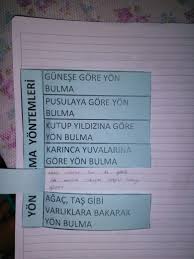 YÖN
MA YÖNTEMLERİ
GÜNEŞE GÖRE YÖN
BULMA
PUSULAYA GÖRE YÖN
BULMA
KUTUP YILDIZINA GÖRE
YÖN BULMA
KARINCA YUVALARINA
GÖRE YÖN BULMA
AĞAÇ, TAŞ GİBİ
VARLIKLARA BAKARAK
YÖN BULMA